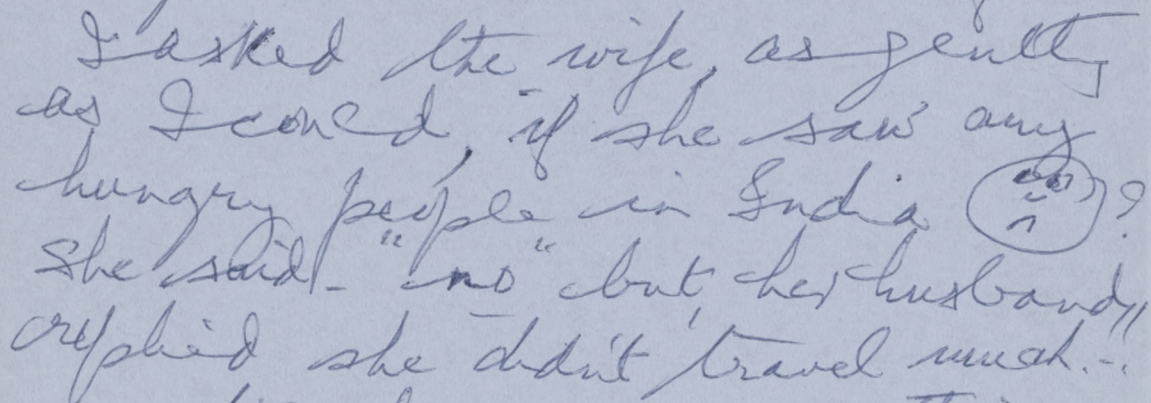 I asked the wife, as gently
as I could, if she saw any
hungry people in India ?
She said - "no" but, her husband,
replied she didn't travel much...